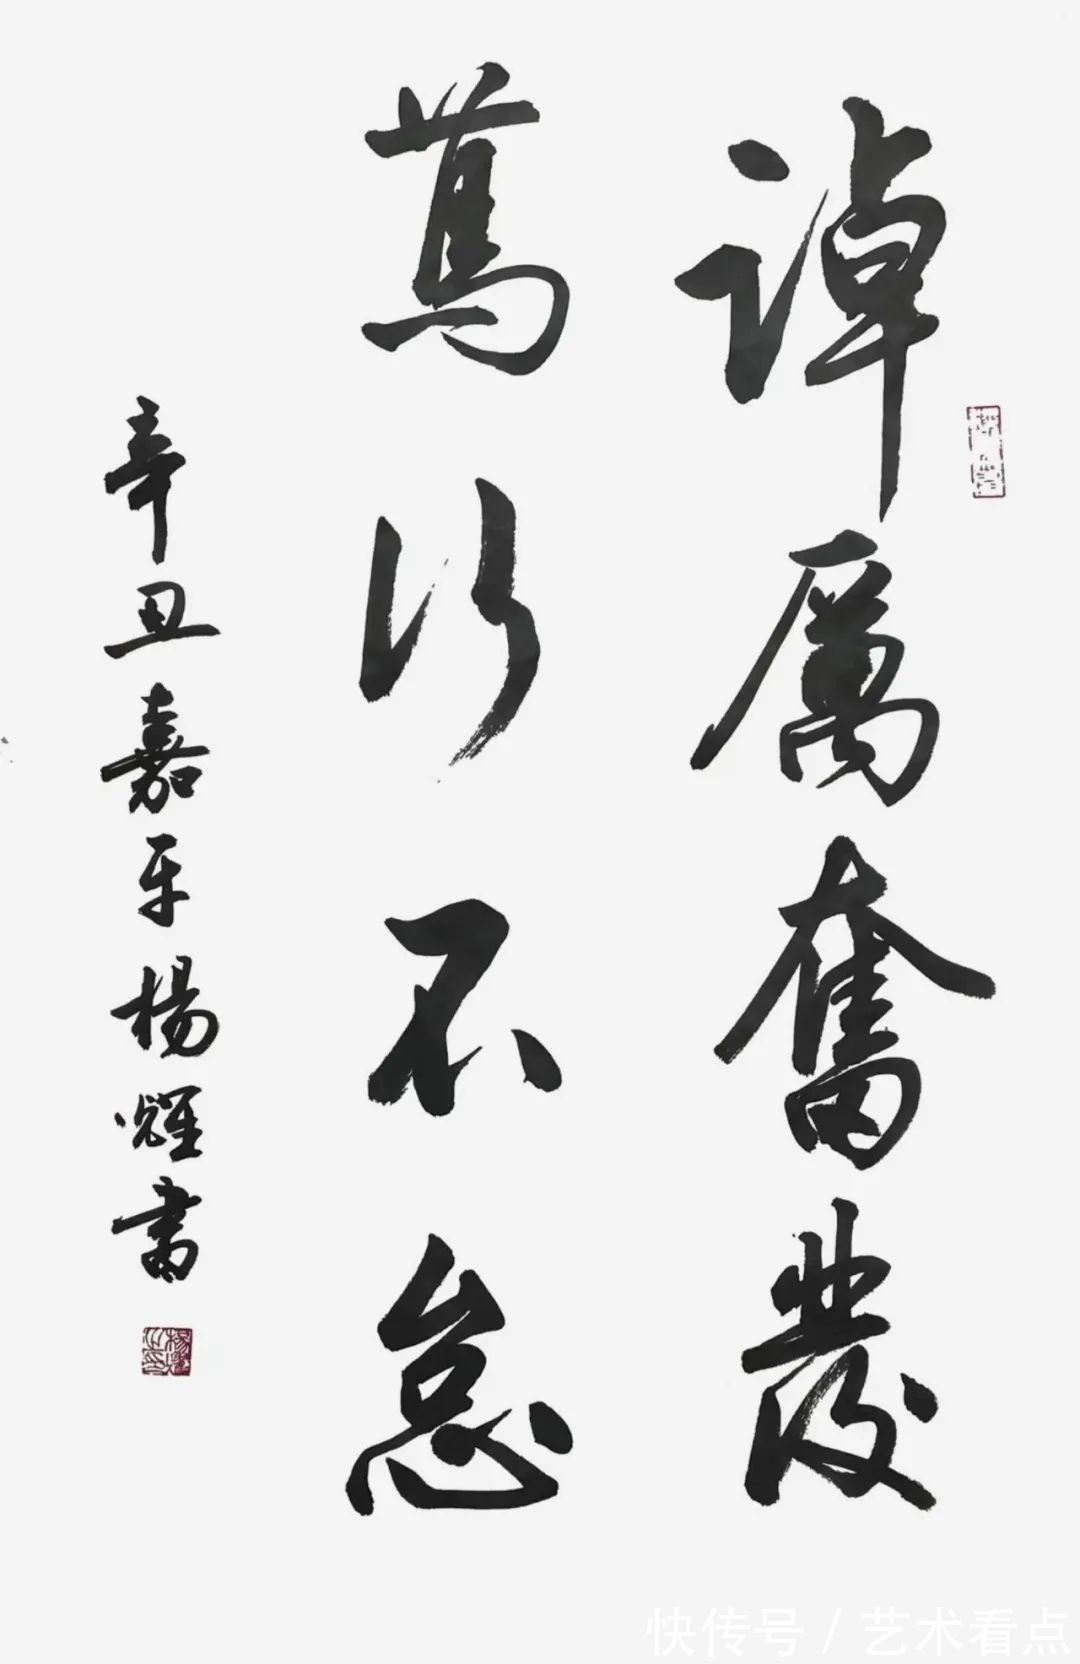 踔厲奮發
篤行不怠
辛丑嘉平楊耀書
快传号 / 艺术看点